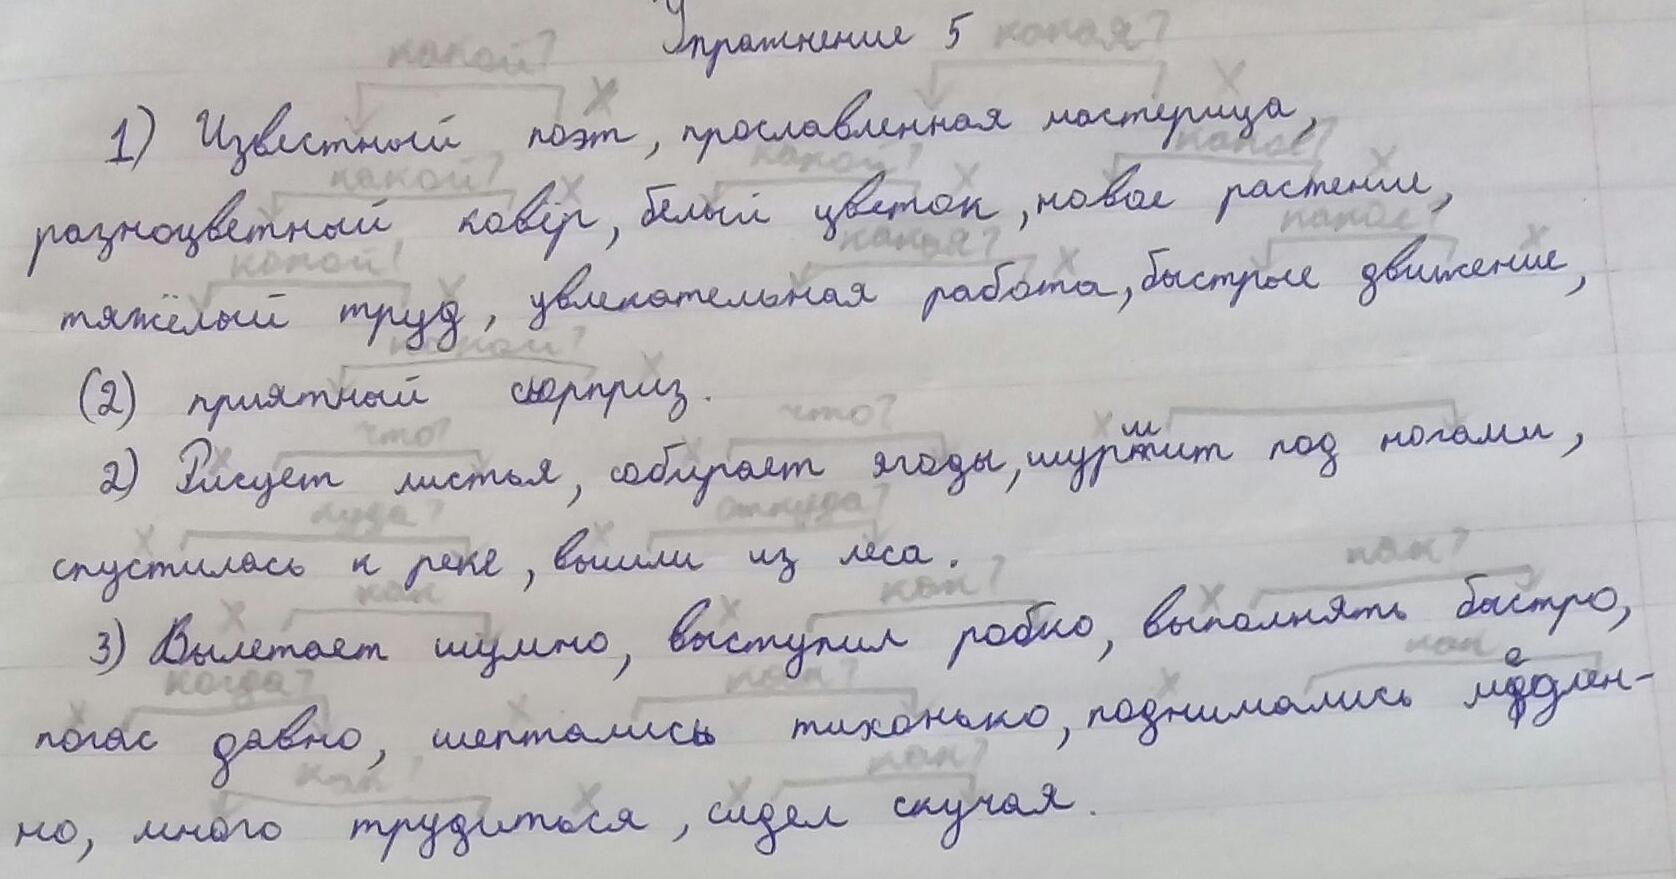 Упражнение 5
какой? какая?
х х
1) Известный поэт, прославленная мастерица,
какой? какой? какое?
х х х
разноцветный ковёр, белый цветок, новое растение,
какой? какая? какое?
х х х
тяжёлый труд, увлекательная работа, быстрое движение,
какой? х
(2) приятный сюрприз.
что? что?
х х х
2) Рисует листья, собирает ягоды, шуршит под ногами,
куда? откуда?
х х
спустилась к реке, вышли из леса.
как как? как?
х х х
3) Вылетает шумно, выступил робко, выполнять быстро,
когда? как? как
х х х
погас давно, шептались тихонько, поднимались медлен-
как? как?
х х
но, много трудиться, сидел скучая.